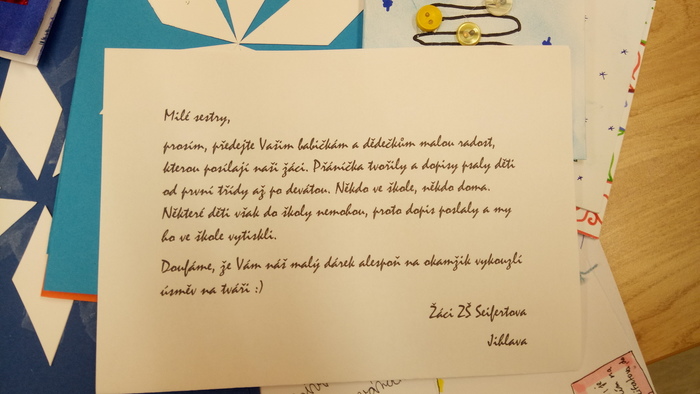 Milé sestry,
prosím, předejte Vašim babičkám a dědečkům malou radost,
kterou posílají naši žáci. Přáníčka tvořily a dopisy psaly děti
od první třídy až po devátou. Někdo ve škole, někdo doma.
Některé děti však do školy nemohou, proto dopis poslaly a my
ho ve škole vytiskli.
Doufáme, že Vám náš malý dárek alespoň na okamžik vykouzlí
úsměv na tváři :)
Žáci ZŠ Seifertova
Jihlava